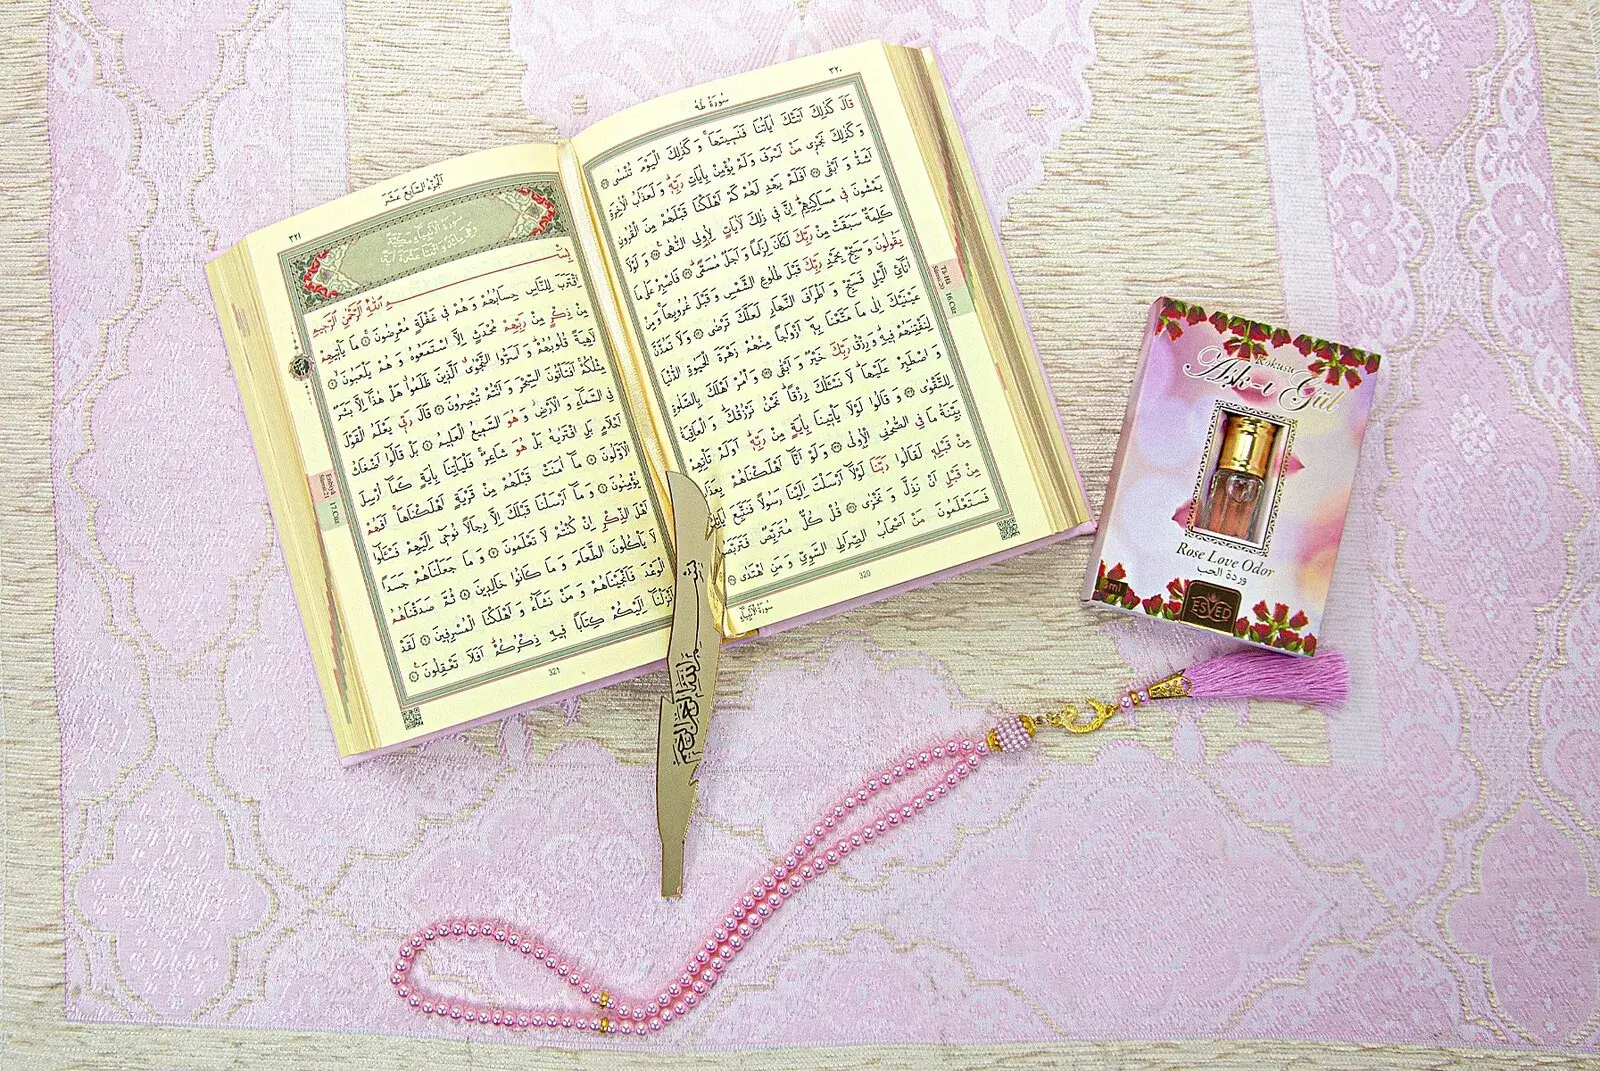 ٣٢٠
سُورَةُ طٰهٰ
قَالَ كَذٰلِكَ اَتَتْكَ اٰيَاتُنَا فَنَسٖيتَهَاۚ وَكَذٰلِكَ الْيَوْمَ تُنْسٰى
وَكَذٰلِكَ نَجْزٖى مَنْ اَسْرَفَ وَلَمْ يُؤْمِنْ بِاٰيَاتِ رَبِّهٖۜ وَلَعَذَابُ الْاٰخِرَةِ
اَشَدُّ وَاَبْقٰى اَفَلَمْ يَهْدِ لَهُمْ كَمْ اَهْلَكْنَا قَبْلَهُمْ مِنَ الْقُرُونِ
يَمْشُونَ فٖى مَسَاكِنِهِمْۜ اِنَّ فٖى ذٰلِكَ لَاٰيَاتٍ لِاُولِى النُّهٰى وَلَوْلَا
كَلِمَةٌ سَبَقَتْ مِنْ رَبِّكَ لَكَانَ لِزَامًا وَاَجَلٌ مُسَمًّىۜ فَاصْبِرْ عَلٰى مَا
يَقُولُونَ وَسَبِّحْ بِحَمْدِ رَبِّكَ قَبْلَ طُلُوعِ الشَّمْسِ وَقَبْلَ غُرُوبِهَاۚ وَمِنْ
اٰنَائِ الَّيْلِ فَسَبِّحْ وَاَطْرَافَ النَّهَارِ لَعَلَّكَ تَرْضٰى وَلَا تَمُدَّنَّ
عَيْنَيْكَ اِلٰى مَا مَتَّعْنَا بِهٖ اَزْوَاجًا مِنْهُمْ زَهْرَةَ الْحَيٰوةِ الدُّنْيَا
لِنَفْتِنَهُمْ فٖيهِۜ وَرِزْقُ رَبِّكَ خَيْرٌ وَاَبْقٰى وَأْمُرْ اَهْلَكَ بِالصَّلٰوةِ
وَاصْطَبِرْ عَلَيْهَاۜ لَا نَسْـَٔلُكَ رِزْقًاۜ نَحْنُ نَرْزُقُكَۜ وَالْعَاقِبَةُ
لِلتَّقْوٰى وَقَالُوا لَوْلَا يَأْتٖينَا بِاٰيَةٍ مِنْ رَبِّهٖۜ اَوَلَمْ تَأْتِهِمْ
بَيِّنَةُ مَا فِى الصُّحُفِ الْاُولٰى وَلَوْ اَنَّا اَهْلَكْنَاهُمْ بِعَذَابٍ
مِنْ قَبْلِهٖ لَقَالُوا رَبَّنَا لَوْلَا اَرْسَلْتَ اِلَيْنَا رَسُولًا فَنَتَّبِعَ اٰيَاتِكَ
مِنْ قَبْلِ اَنْ نَذِلَّ وَنَخْزٰى قُلْ كُلٌّ مُتَرَبِّصٌ فَتَرَبَّصُوا
فَسَتَعْلَمُونَ مَنْ اَصْحَابُ الصِّرَاطِ السَّوِىِّ وَمَنِ اهْتَدٰى
320
سُورَةُ الْاَنْبِيَاءِ
Tâ-Hâ
Sûresi:20
16.Cüz
اَلْجُزْءُ السَّابِعُ عَشَرَ
٣٢١
سُورَةُ الْاَنْبِيَاءِ مَكِّيَّةٌ
وَهِىَ مِائَةٌ وَاثْنَتَا عَشْرَةَ اٰيَةً
بِسْمِ اللّٰهِ الرَّحْمٰنِ الرَّحٖيمِ
اِقْتَرَبَ لِلنَّاسِ حِسَابُهُمْ وَهُمْ فٖى غَفْلَةٍ مُعْرِضُونَ مَا يَأْتٖيهِمْ
مِنْ ذِكْرٍ مِنْ رَبِّهِمْ مُحْدَثٍ اِلَّا اسْتَمَعُوهُ وَهُمْ يَلْعَبُونَ
لَاهِيَةً قُلُوبُهُمْۜ وَاَسَرُّوا النَّجْوَىۗ الَّذٖينَ ظَلَمُوا هَلْ هٰذَا اِلَّا بَشَرٌ
مِثْلُكُمْۚ اَفَتَأْتُونَ السِّحْرَ وَاَنْتُمْ تُبْصِرُونَ قَالَ رَبّٖى يَعْلَمُ الْقَوْلَ
فِى السَّمَاءِ وَالْاَرْضِۘ وَهُوَ السَّمٖيعُ الْعَلٖيمُ بَلْ قَالُوا اَضْغَاثُ
اَحْلَامٍ بَلِ افْتَرٰيهُ بَلْ هُوَ شَاعِرٌۚ فَلْيَأْتِنَا بِاٰيَةٍ كَمَا اُرْسِلَ
الْاَوَّلُونَ مَا اٰمَنَتْ قَبْلَهُمْ مِنْ قَرْيَةٍ اَهْلَكْنَاهَاۚ اَفَهُمْ
يُؤْمِنُونَ وَمَا اَرْسَلْنَا قَبْلَكَ اِلَّا رِجَالًا نُوحٖى اِلَيْهِمْ فَسْـَٔلُوا
اَهْلَ الذِّكْرِ اِنْ كُنْتُمْ لَا تَعْلَمُونَ وَمَا جَعَلْنَاهُمْ جَسَدًا
لَا يَأْكُلُونَ الطَّعَامَ وَمَا كَانُوا خَالِدٖينَ ثُمَّ صَدَقْنَاهُمُ
الْوَعْدَ فَاَنْجَيْنَاهُمْ وَمَنْ نَشَاءُ وَاَهْلَكْنَا الْمُسْرِفٖينَ لَقَدْ
اَنْزَلْنَا اِلَيْكُمْ كِتَابًا فٖيهِ ذِكْرُكُمْۜ اَفَلَا تَعْقِلُونَ
321
Enbiyâ
Sûresi:21
17.Cüz
بسم الله الرحمن الرحيم
Kokusu
Aşk-ı Gül
Rose Love Odor
وردة الحب
ml
ESVED